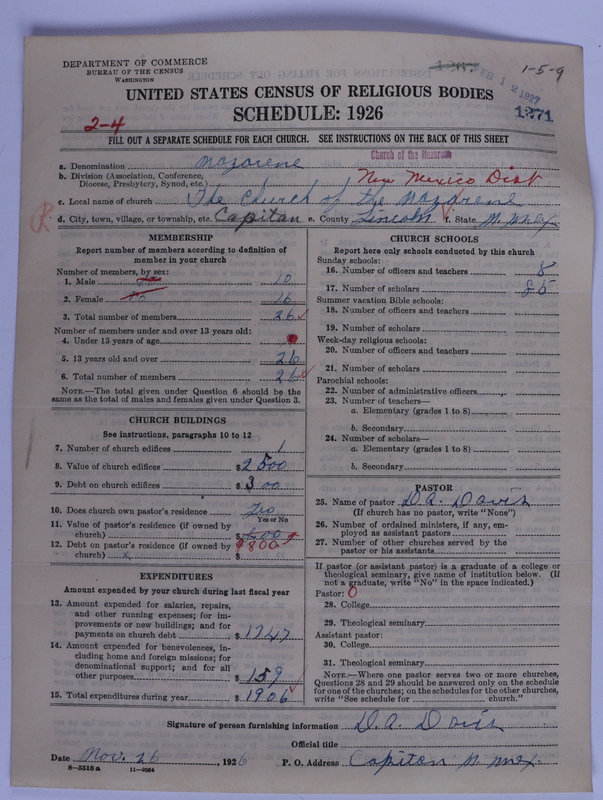 DEPARTMENT OF COMMERCE
BUREAU OF THE CENSUS
WASHINGTON
FEB 12 1927
1-5-9
1271
UNITED STATES CENSUS OF RELIGIOUS BODIES
SCHEDULE: 1926
2-4
FILL OUT A SEPARATE SCHEDULE FOR EACH CHURCH. SEE INSTRUCTIONS ON THE BACK OF THIS SHEET
Church of the Nazarene
a. Denomination Nazarene
b. Division (Association, Conference, Diocese, Presbytery, Synod, etc.) New Mexico Dist
c. Local name of church The Church of the Nazarene
d. City, town, village, or township, etc. Capitan e. County Lincoln f. State N. Mex
MEMBERSHIP
Report number of members according to definition of
member in your church
Number of members, by sex:
1. Male 10
2. Female 16
3. Total number of members 26
Number of members under and over 13 years old:
4. Under 13 years of age
5. 13 years old and over 26
6. Total number of members 26
NOTE.—The total given under Question 6 should be
same as the total of males and females given under Question 3.
CHURCH BUILDINGS
See instructions, paragraphs 10 to 12
7. Number of church edifices 1
8. Value of church edifices $ 2500
9. Debt on church edifices $ 300
10. Does church own pastor's residence
Yes or No
11. Value of pastor's residence (if owned by
church) $
12. Debt on pastor's residence (if owned by $800
church) x
EXPENDITURES
Amount expended by your church during last fiscal year
13. Amount expended for salaries, repairs,
and other running expenses; for im-
provements or new buildings; and for
payments on church debt $ 1747
14. Amount expended for benevolences, in-
cluding home and foreign missions; for
denominational support; and for all
other purposes $ 159
15. Total expenditures during year $ 1906
CHURCH SCHOOLS
Report here only schools conducted by this church
Sunday schools:
16. Number of officers and teachers 8
17. Number of scholars 85
Summer vacation Bible schools:
18. Number of officers and teachers
19. Number of scholars
Week-day religious schools:
20. Number of officers and teachers
21. Number of scholars
Parochial schools:
22. Number of administrative officers
23. Number of teachers—
a. Elementary (grades 1 to 8)
b. Secondary
24. Number of scholars—
a. Elementary (grades 1 to 8)
b. Secondary
PASTOR
25. Name of pastor D. A. Davis
(If church has no pastor, write "None")
26. Number of ordained ministers, if any, em-
ployed as assistant pastors
27. Number of other churches served by the
pastor or his assistants
If pastor (or assistant pastor) is a graduate of a college or
theological seminary, give name of institution below. (If
not a graduate, write "No" in the space indicated.)
Pastor: 0
28. College
29. Theological seminary
Assistant pastor:
30. College
31. Theological seminary
NOTE.—Where one pastor serves two or more churches,
Questions 28 and 29 should be answered only on the schedule
for one of the churches; on the schedules for the other churches,
write "See schedule for church."
Signature of person furnishing information D. A. Davis
Official title
Date Nov. 26, 1926 P. O. Address Capitan N. Mex.
8-5518a 11-9054